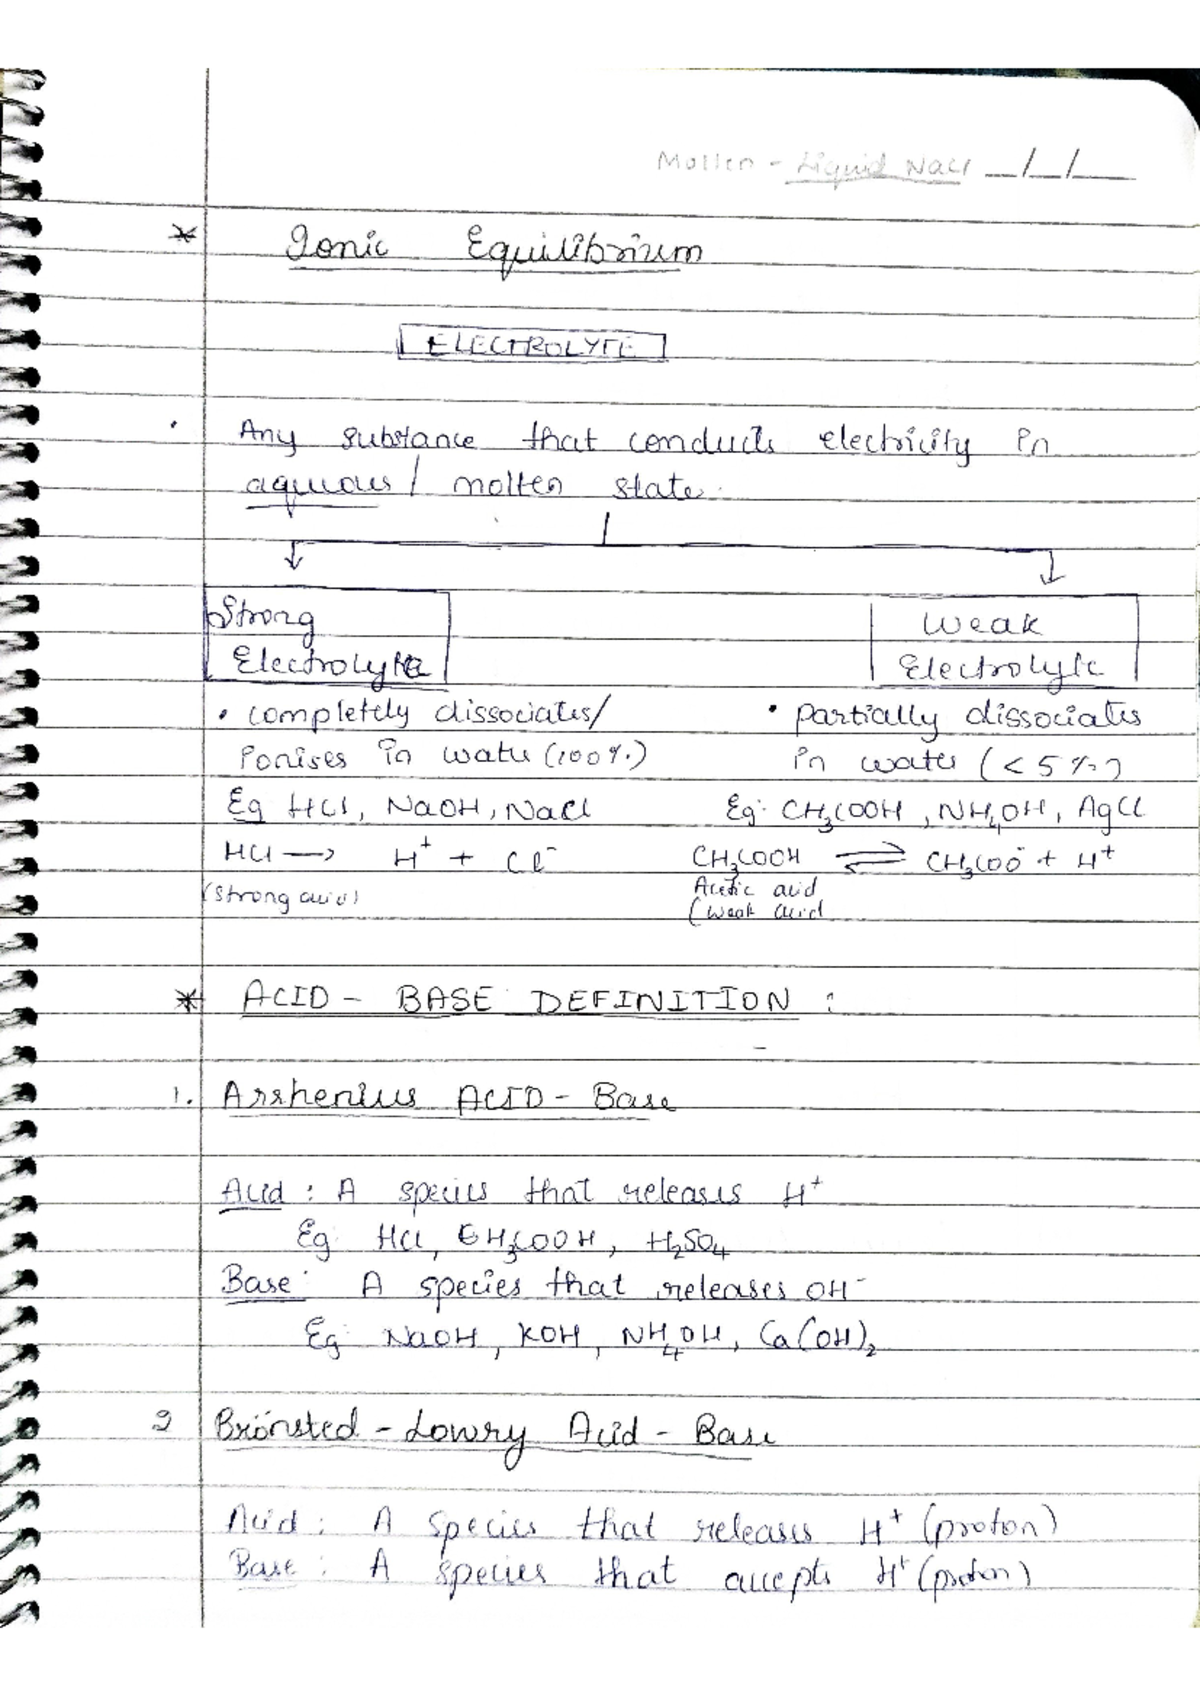 Molten - Liquid NaCl __/__/__
* Ionic Equilibrium
ELECTROLYTE
. Any substance that conducts electricity in
aquous / molten state.
Strong Electrolyte
• completely dissociates/
ionises in water (100%)
Eg HCl, NaOH, NaCl
HCl ⟶ H⁺ + Cl⁻
(strong acid)
Weak Electrolyte
• partially dissociates
in water (< 5%)
Eg: CH₃COOH, NH₄OH, AgCl
CH₃COOH ⇌ CH₃COO⁻ + H⁺
Acetic acid
(weak acid
* ACID - BASE DEFINITION :
1. Arrhenius ACID - Base
Acid : A species that releases H⁺
Eg HCl, CH₃COOH, H₂SO₄
Base : A species that releases OH⁻
Eg: NaOH, KOH, NH₄OH, Ca(OH)₂
2 Brönsted - Lowry Acid - Base
Acid : A species that releases H⁺ (proton)
Base : A species that accepts H⁺ (proton)